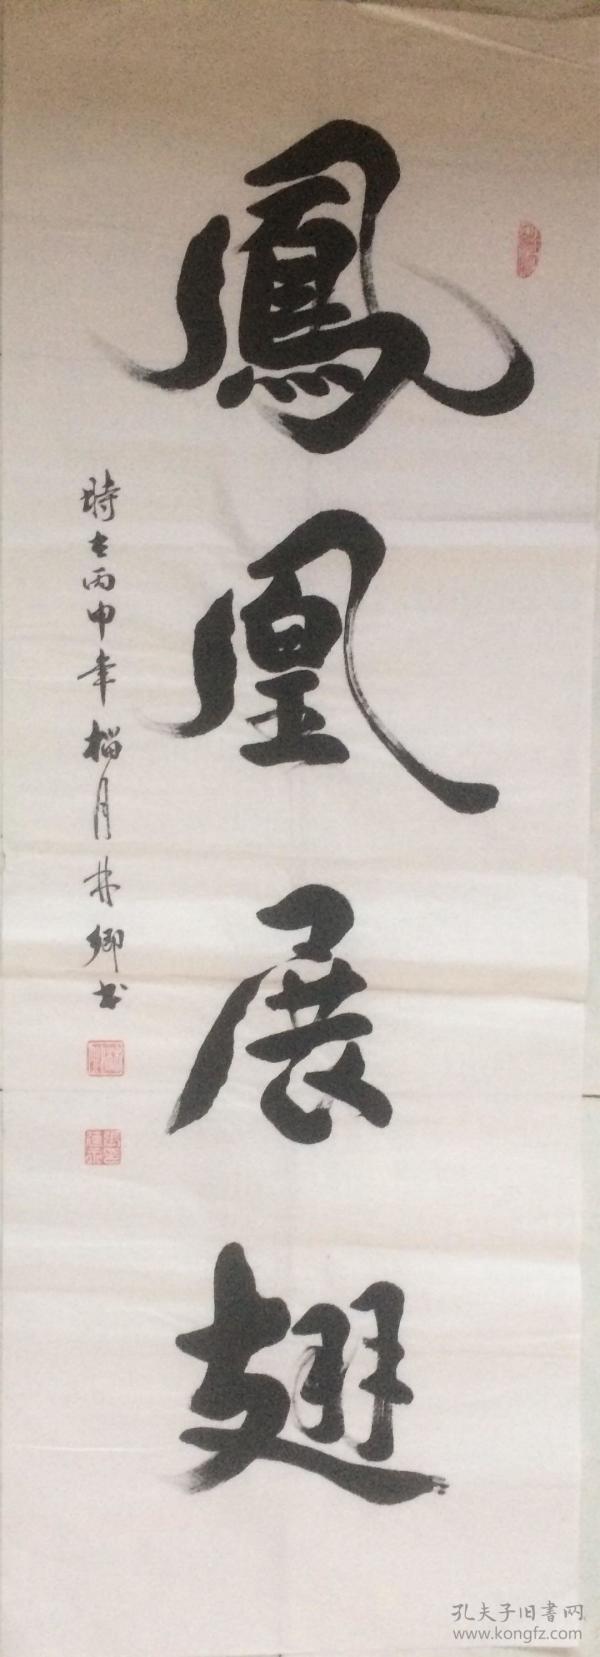 鳳凰展翅
時在丙申年榴月井鄉书
孔夫子旧書网
www.kongfz.com